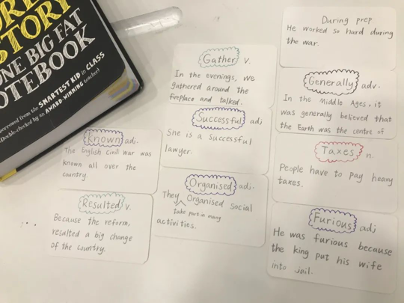 STORY
ONE BIG FAT
NOTEBOOK
borrowed from the SMARTEST KID in CLASS
Double-checked by an AWARD-WINNING teacher
Gather v.
In the evenings, we
gathered around the
fireplace and talked.
Successful adj
She is a successful
lawyer.
Organised adj.
They Organised social
take part in many
activities.
Known adj.
The English Civil war was
known all over the
country.
Resulted v.
Because the reform,
resulted a big change
of the country.
During prep
He worked so hard during
the war.
Generally adv.
In the Middle Ages, it
was generally believed that
the Earth was the centre of
Taxes n.
People have to pay heavy
taxes.
Furious adj
He was furious because
the king put his wife
into jail.